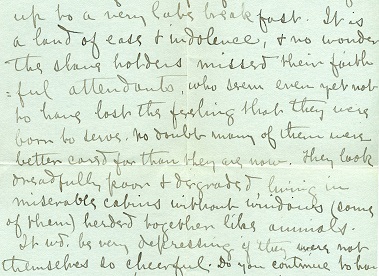 up to a very late breakfast. It is
a land of ease & indolence, & no wonder
the slave holders missed their faith
=ful attendants, who seem even yet not
to have lost the feeling that they were
born to serve. No doubt many of them were
better cared for than they are now. They look
dreadfully poor & degraded, living in
miserable cabins without windows (some
of them) herded together like animals.
It wd. be very depressing if they were not
themselves so cheerful. Do you continue to hear